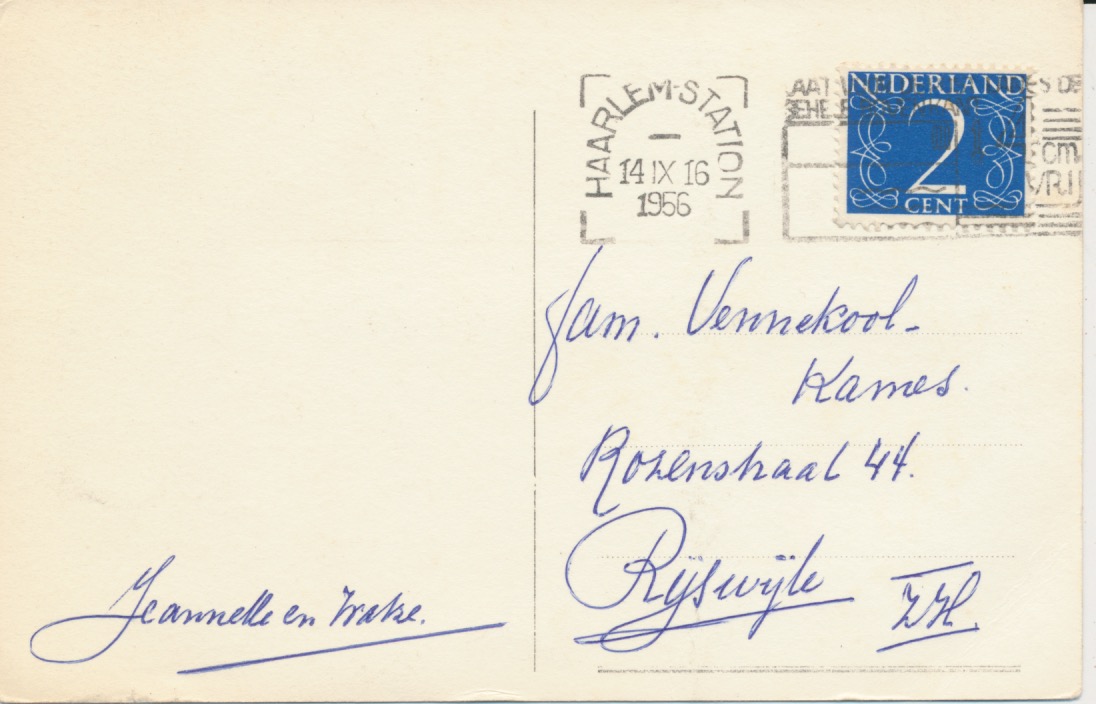 HAARLEM-STATION
14 IX 16
1956
NEDERLAND
2
CENT
Fam. Vennekool-
Kames.
Rozenstraat 44.
Rijswijk
ZH.
Jeannette en